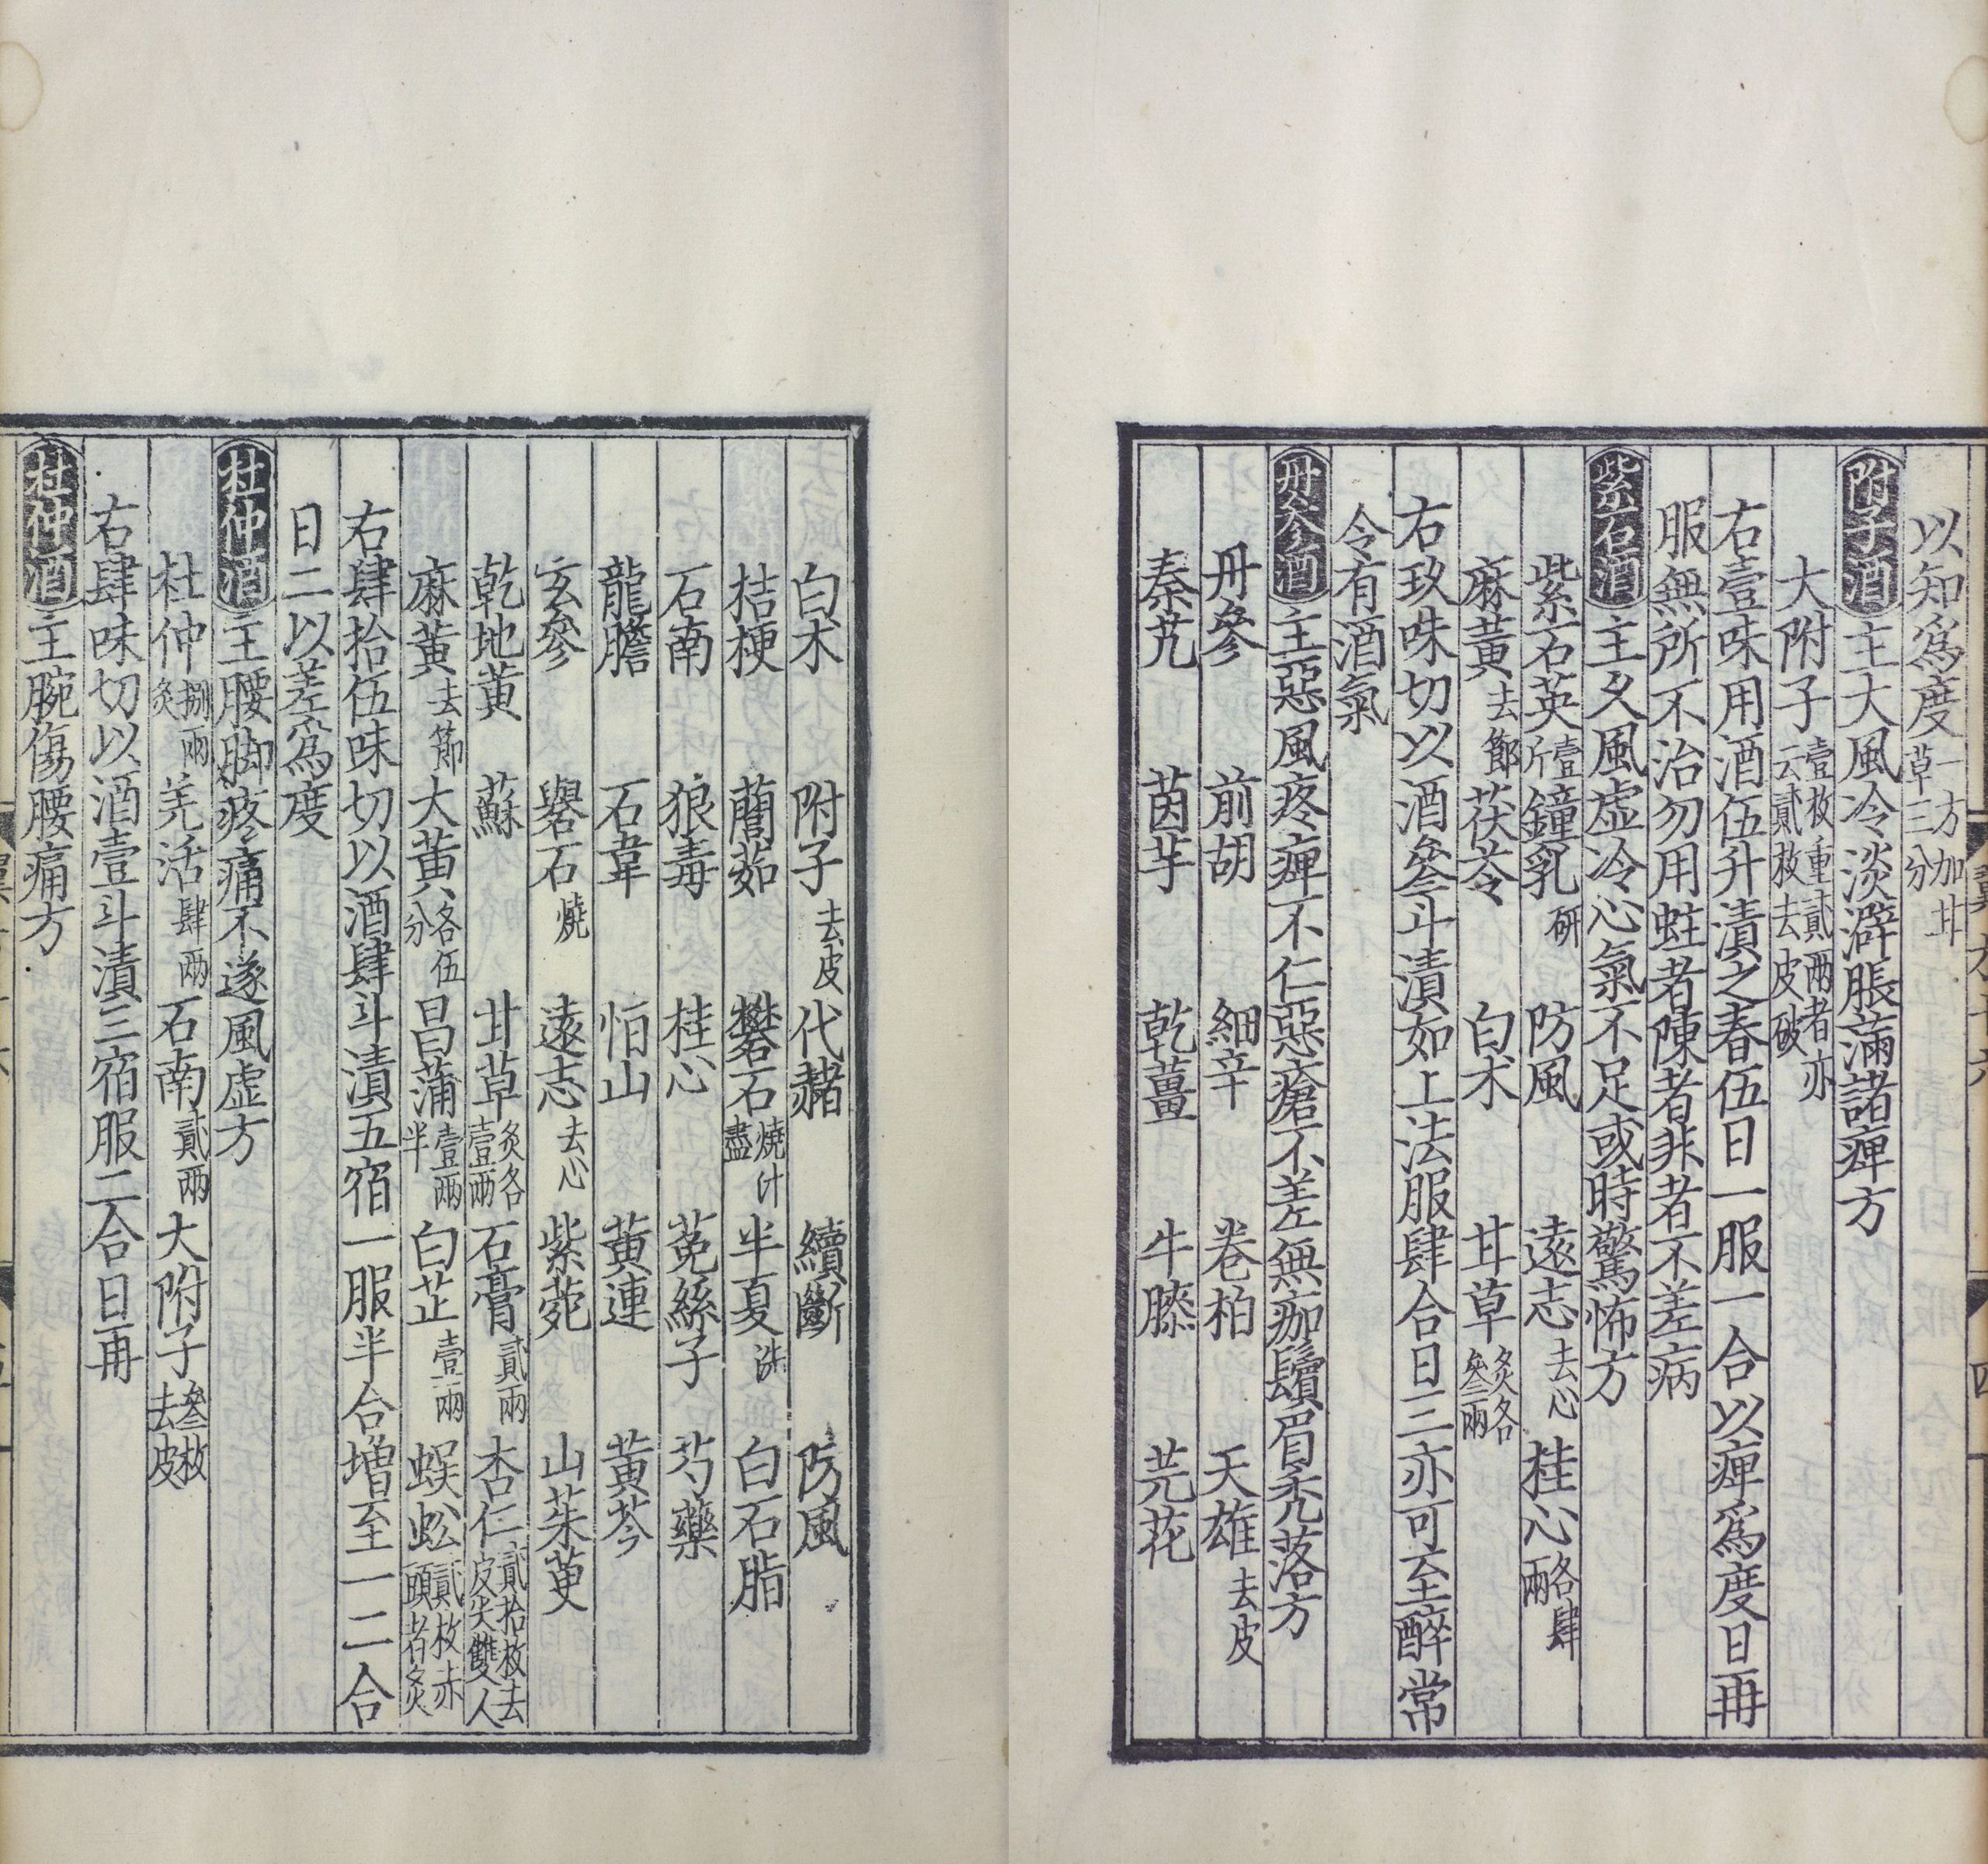 以知爲度一方加甘草三分
附子酒主大風冷淡澼脹滿諸痺方
大附子壹枚重貳兩者亦云貳枚去皮破
右壹味用酒伍升漬之春伍日一服一合以痺爲度日再
服無所不治勿用蛀者陳者非者不差病
紫石酒主久風虛冷心氣不足或時驚怖方
紫石英壹斤 鐘乳研 防風 遠志去心 桂心各肆兩
麻黃去節 茯苓 白术 甘草炙各叄兩
右玖味切以酒叄斗漬如上法服肆合日三亦可至醉常
令有酒氣
丹參酒主惡風疼痺不仁惡瘡不差無痂鬚眉禿落方
丹參 前胡 細辛 卷柏 天雄去皮
秦艽 茵芋 乾薑 牛膝 芫花
白术 附子去皮 代赭 續斷 防風
桔梗 䕡茹 礬石燒汁盡 半夏洗 白石脂
石南 狼毒 桂心 菟絲子 芍藥
龍膽 石韋 恒山 黃連 黃芩
玄參 礜石燒 遠志去心 紫菀 山茱萸
乾地黃 蘇 甘草炙各壹兩 石膏貳兩 杏仁貳拾枚去皮尖雙人
麻黃去節 大黃各伍分 昌蒲壹兩半 白芷壹兩 蜈蚣貳枚赤頭者炙
右肆拾伍味切以酒肆斗漬五宿一服半合增至一二合
日二以差爲度
杜仲酒主腰脚疼痛不遂風虛方
杜仲捌兩炙 羌活肆兩 石南貳兩 大附子叄枚去皮
右肆味切以酒壹斗漬三宿服二合日再
杜仲酒主腕傷腰痛方